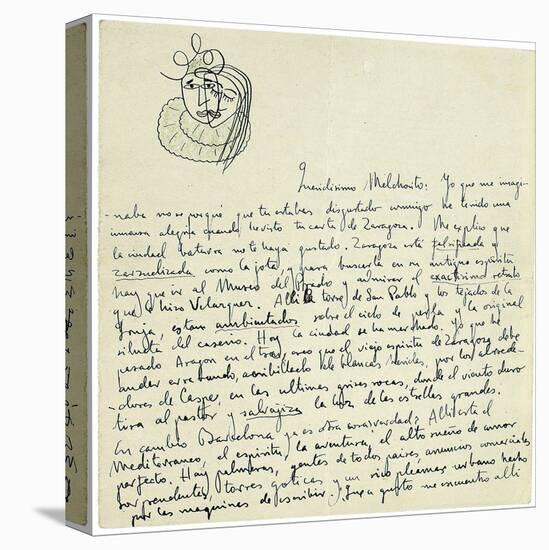 Queridisimo Melchorito: Yo que me imagi-
naba no se porqué que tu estabas disgustado conmigo he tenido una
inmensa alegria cuando he visto tu carta de Zaragoza. Me explico que
la ciudad baturra no te haya gustado. Zaragoza está falsificada y
zarzuelizada como la jota, y para buscarla en su antiguo espiritu
hay que ir al Museo del Prado y admirar el exactisimo retrato
que hizo Velazquez. Alli la torre de San Pablo y los tejados de la
Lonja, estan ambientados sobre el cielo de perla y la original
silueta del caserio. Hoy la ciudad se ha marchado. Yo que he
pasado Aragon en el tren, creo que el viejo espiritu de Zaragoza debe
andar errabundo, acribillado de blancas heridas, por los alrede-
dores de Caspe, en las ultimas grises rocas, donde el viento duro
tira al pastor y salvajiza la luz de las estrellas grandes.
En cambio Barcelona ya es otra cosa ¿verdad? Alli está el
Mediterraneo, el espiritu, la aventura, el alto sueño de amor
perfecto. Hay palmeras, gentes de todos paises, anuncios comerciales
sorprendentes, torres goticas y un rico pleamar urbano hecho
por las maquinas de escribir. ¡Que a gusto me encuentro alli